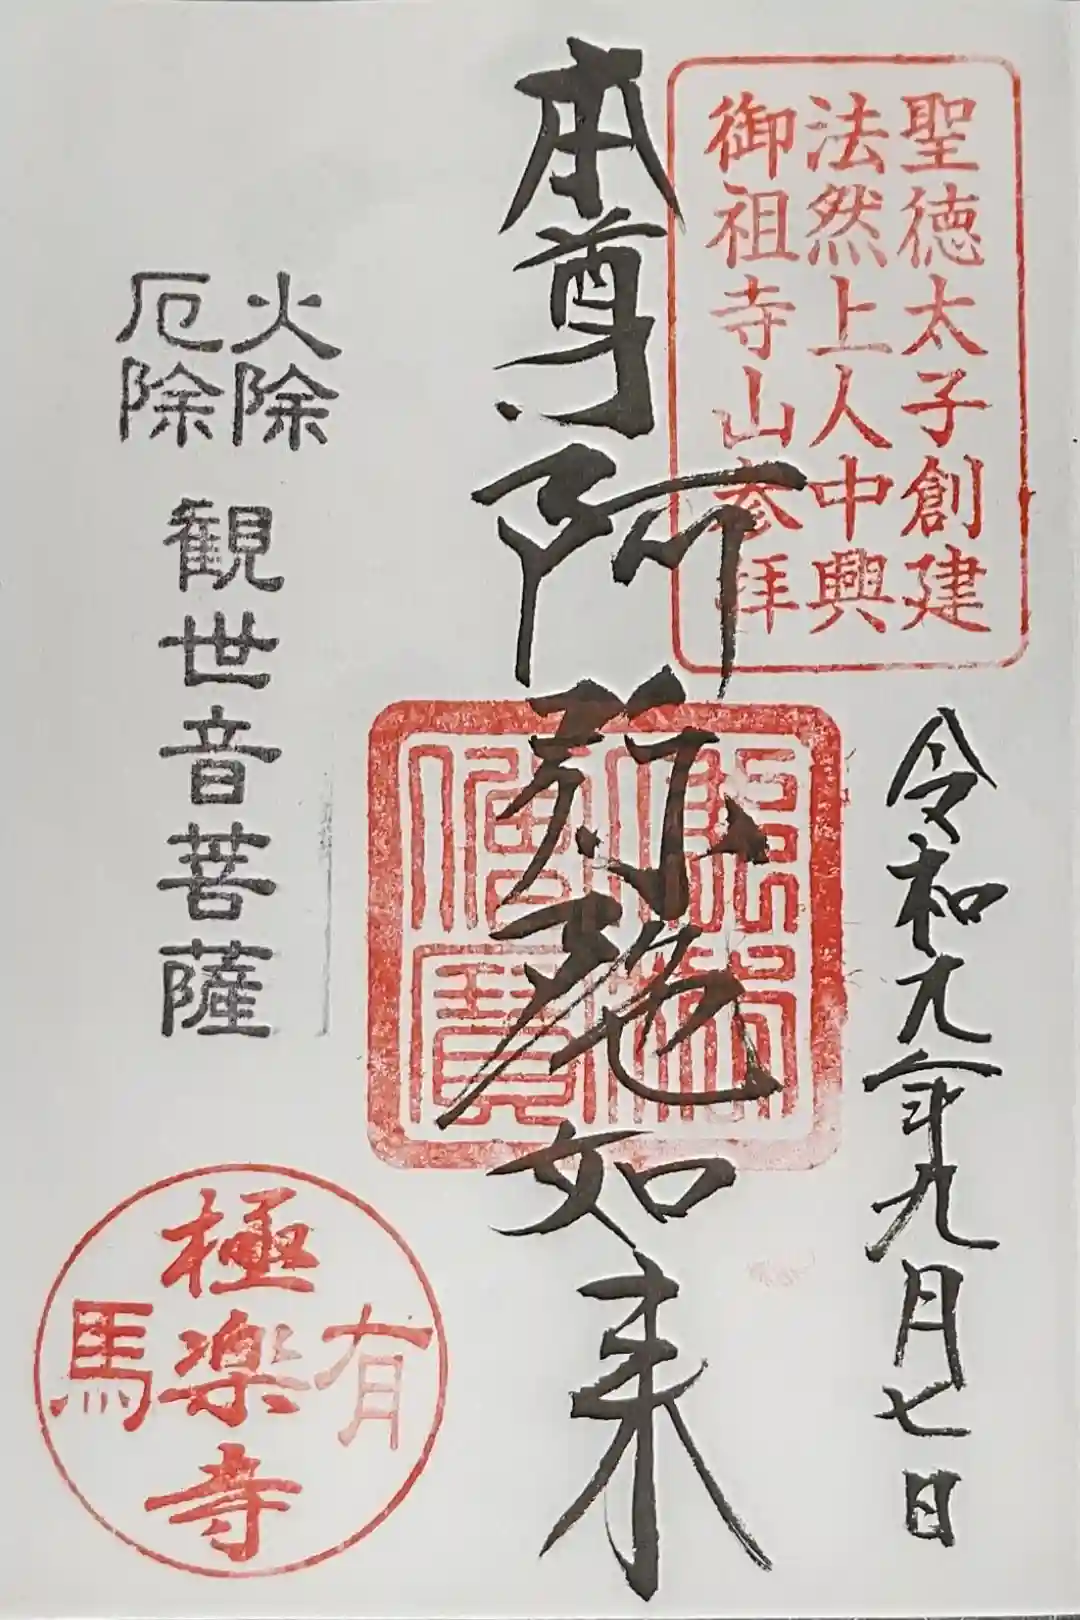 聖徳太子創建
法然上人中興
御祖寺山参拝
令和元年九月七日
本尊阿弥陀如来
火除
厄除
観世音菩薩
有馬
極楽寺